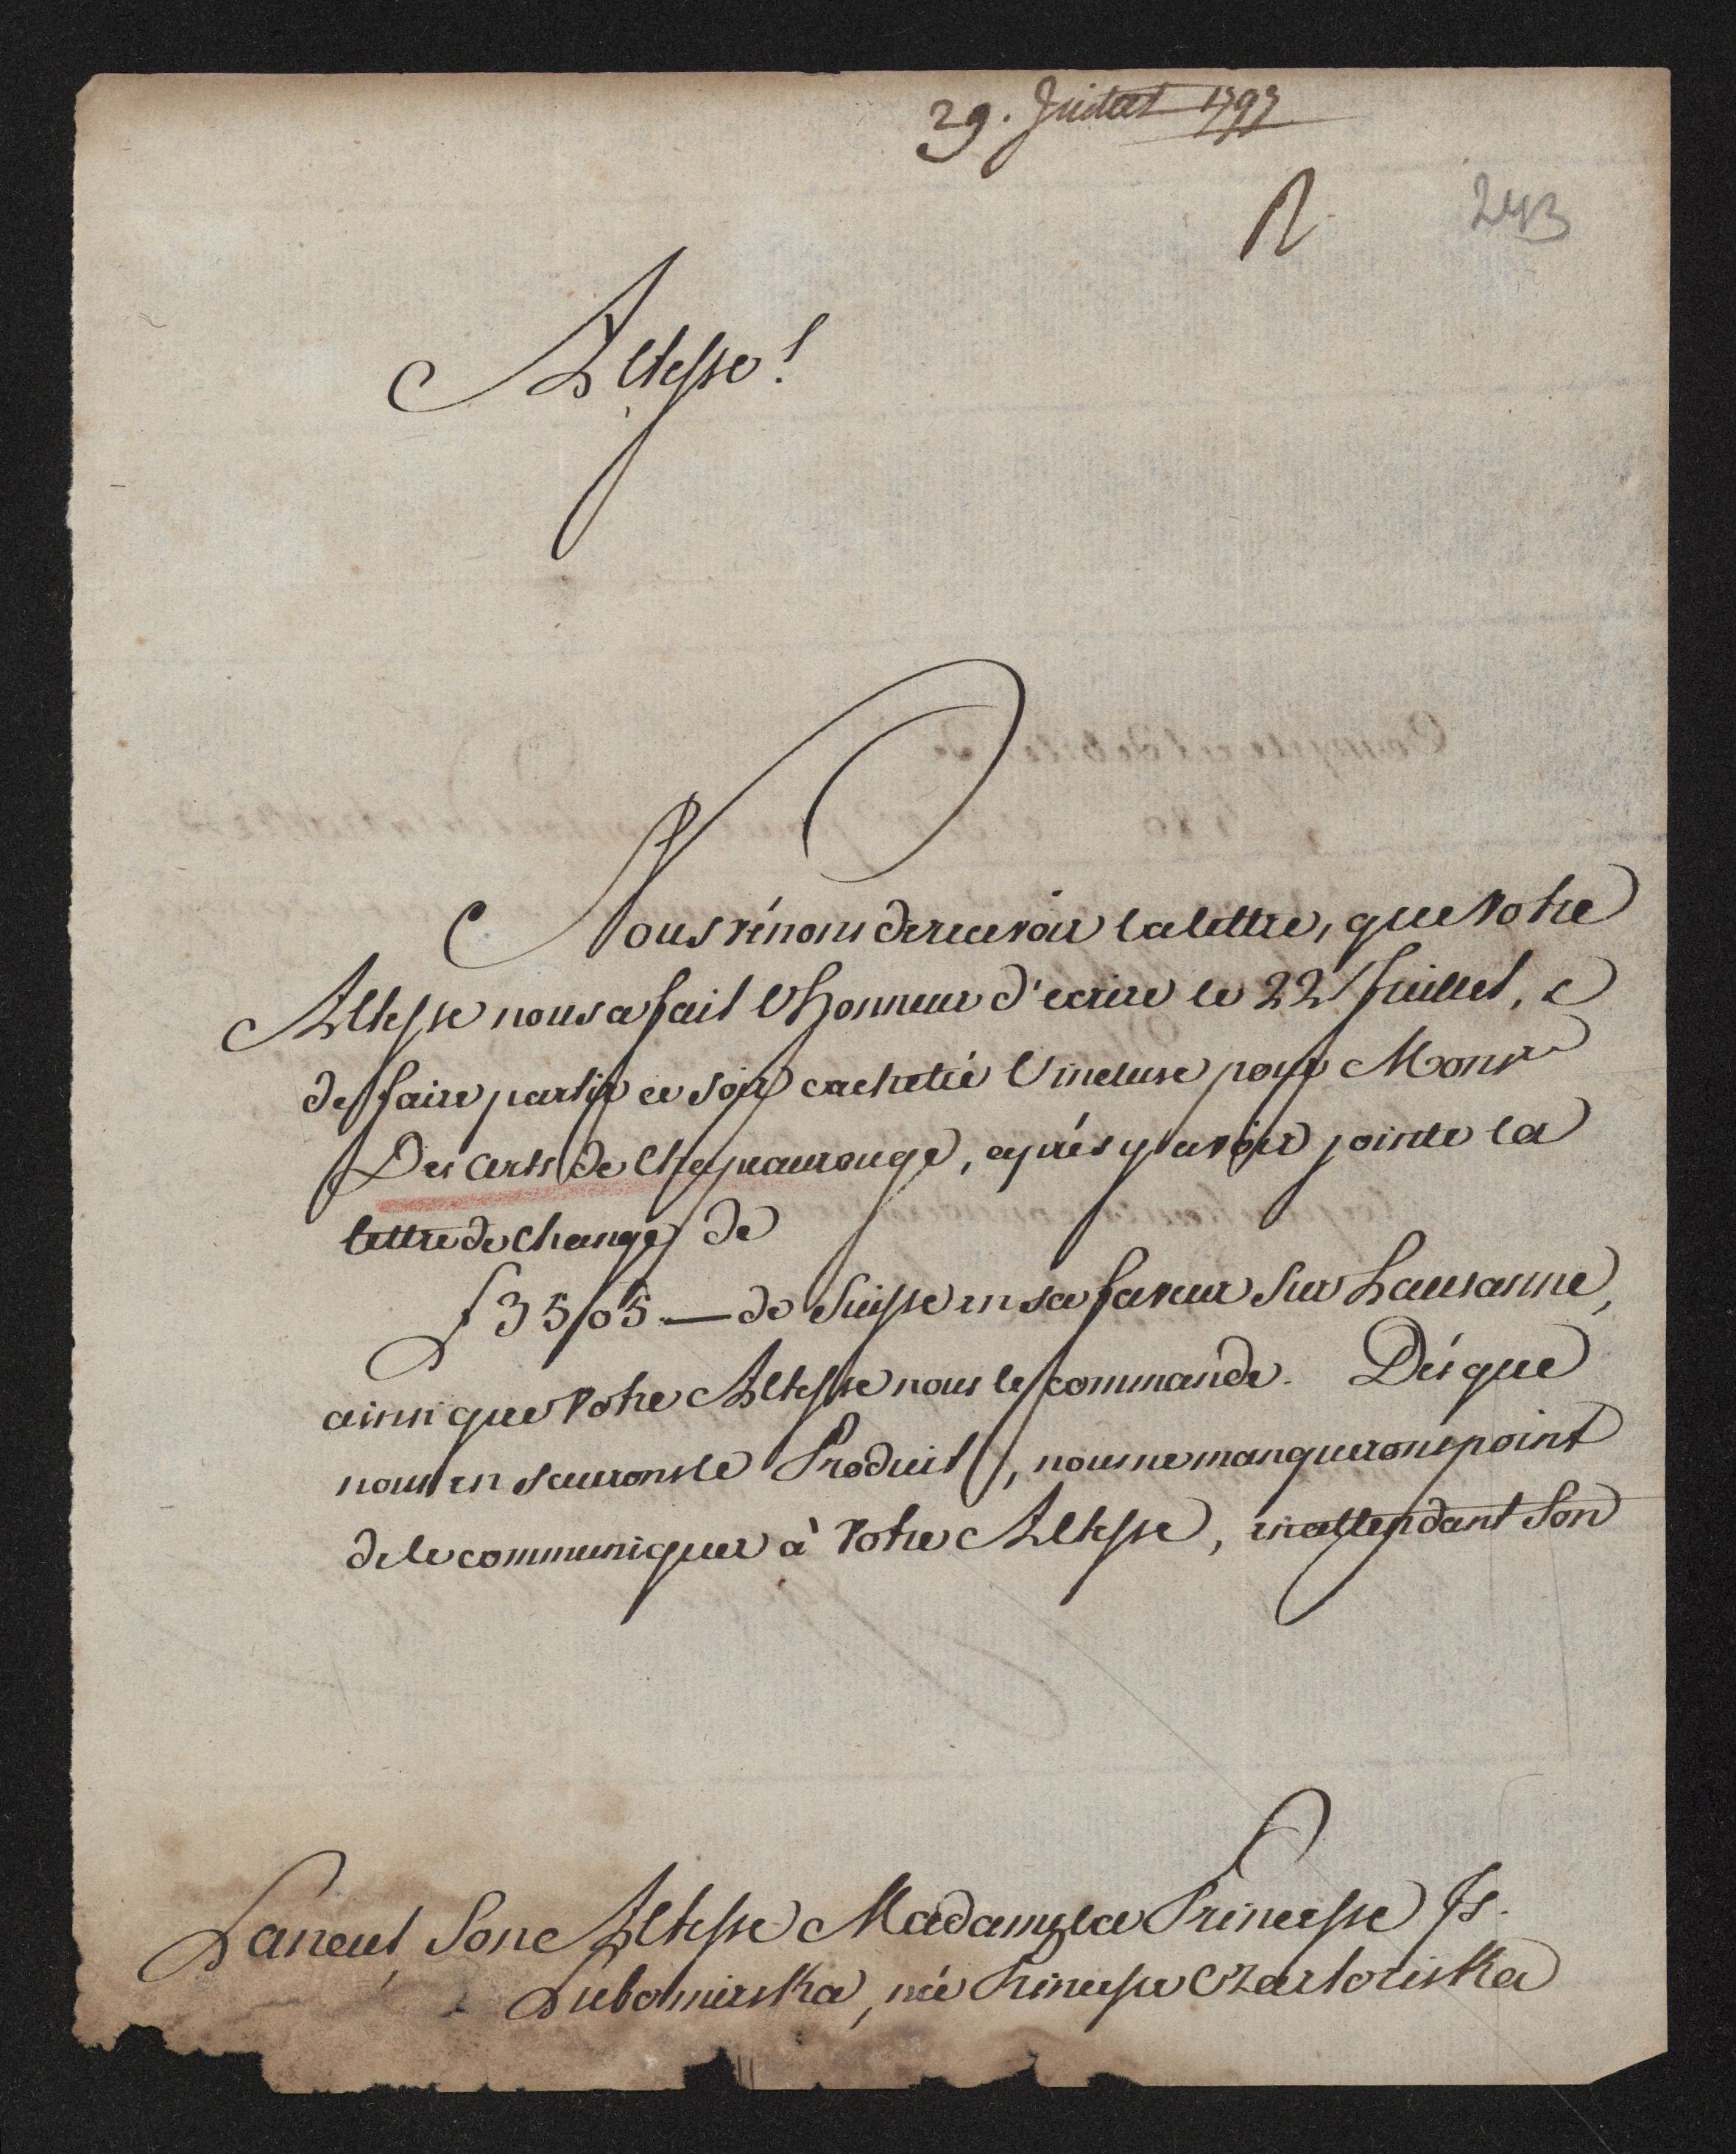 29. Juillet 1797
R
243
Altesse!
Nous vénons de recevoir la lettre, que Votre
Altesse nous a fait l'honneur d'ecrire le 22 Juillet, &
de faire partir ce soir cachetée l'incluse pour Monsr
Des arts de Chapeaurouge, aprés y avoir jointe la
lettre de change de
f 3505.— de Suisse en sa faveur sur Lausanne,
ainsi que Votre Altesse nous le commande. Dés que
nous en saurons le Produit, nous ne manquerons point
de le communiquer à Votre Altesse, en attendant Son
Lancut, Son Altesse Madame la Princesse Is.
Lubomirska, née Princesse Czartoriska